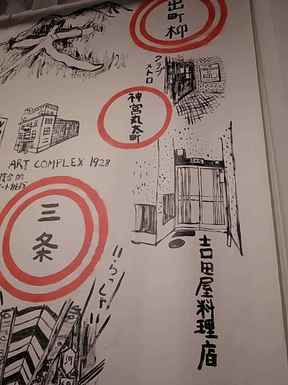 出町柳
クラブ
メトロ
神宮丸太町
ART COMPLEX 1928
三条
吉田屋料理店